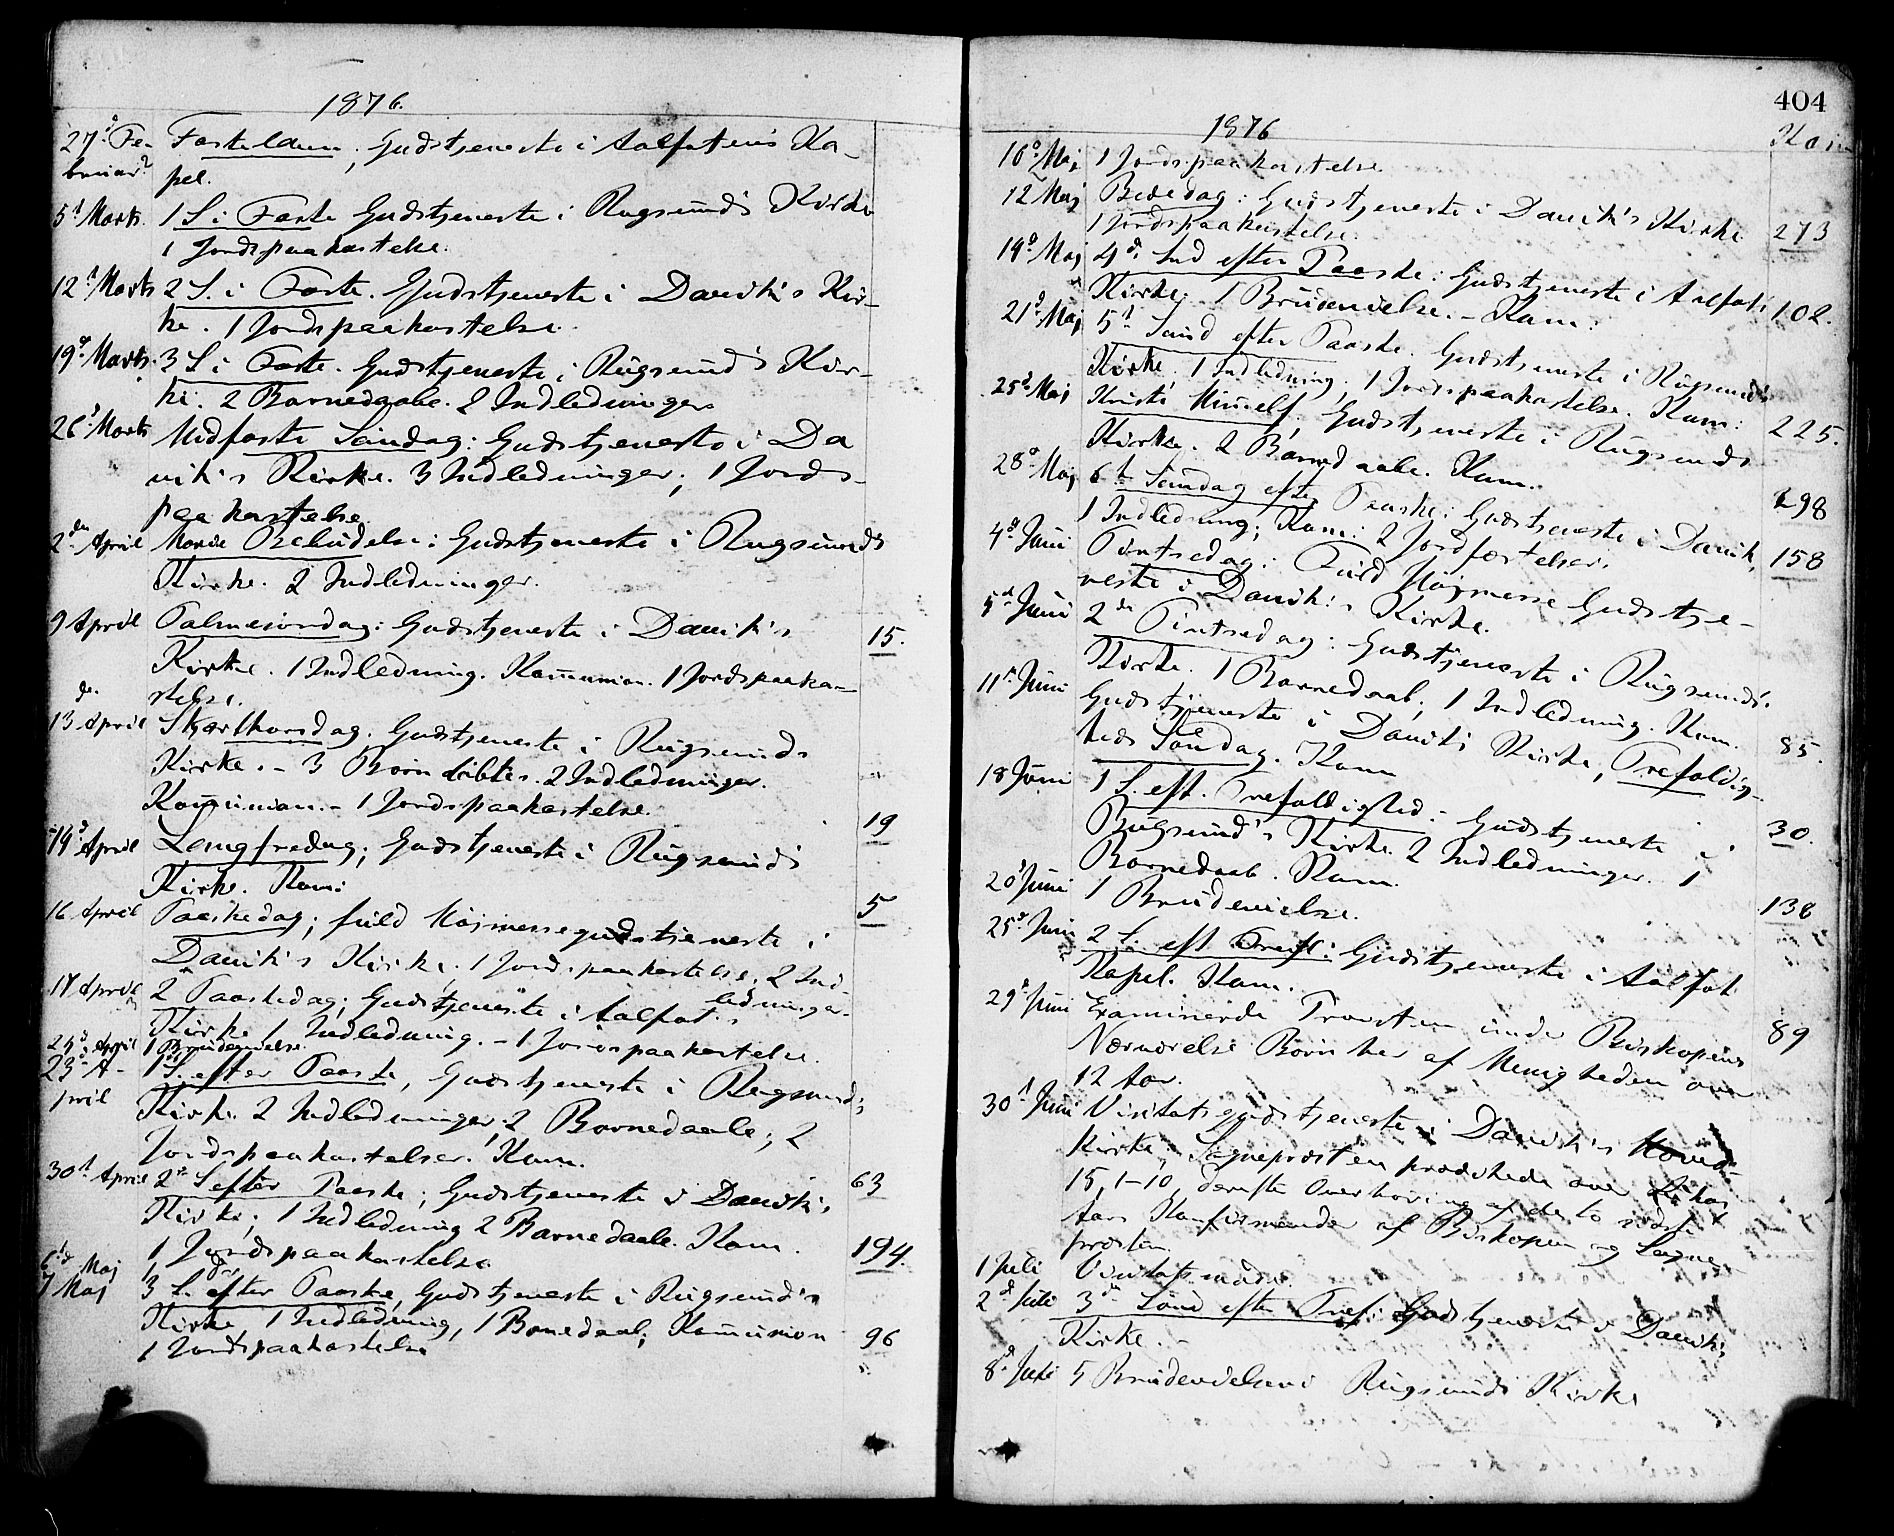 1876.
27d Fe- Fastelavn; Gudstjeneste i Aalfotens Ka-
bruar pel.
5t Marts. 1 S. i Faste Gudstjeneste i Rugsunds Kirke
1 Jordspaakastelse.
12t Marts 2 S. i Faste. Gudstjeneste i Davik's Kir-
ke. 1 Jordspaakastelse.
19d Marts. 3 S i Faste. Gudstjeneste i Rugsund's Kir-
ke. 2 Barnedaabe. 2 Indledninger
26d Marts Midfaste Søndag: Gudstjeneste i Da
vik's Kirke. 3 Indledninger; 1 Jords-
paakastelse
2den April Mariæ Bebudelse: Gudstjeneste i Rugsunds
Kirke. 2 Indledninger.
9 April Palmesøndag: Gudstjeneste i Davik's 15.
Kirke. 1 Indledning. Kommunion. 1 Jordspaaka-
stelse.
13de April Skjærthorsdag. Gudstjeneste i Rugsunds
Kirke. - 3 Børn døbte. 2 Indledninger.
Kommunion. - 1 Jordspaakastelse. 19
14d April Langfredag; Gudstjeneste i Rugsunds
Kirke. Kom: 5
16 April Paaskedag; fuld Højmessegudstjeneste i
Davik's Kirke. 1 Jordspaakastelse; 2 Ind-
ledninger.
17 April 2 Paaskedag; Gudstjeneste i Aalfot.
Kirke 1 Indledning. - 1 Jordspaakastelse.
April 1 Brudevielse.
23d A- 1 S. efter Paaske, Gudstjeneste i Rugsunds
pril Kirke. 2 Indledninger; 2 Barnedaabe; 2
Jordspaakastelser. Kom. 63
30t April 2 S efter Paaske; Gudstjeneste i Davik's
Kirke; 1 Indledning 2 Barnedaabe. Kom. 194.
6d Maj 1 Jordspaakastelse
7 Maj 3 S. efter Paaske, Gudstjeneste i Rugsund's
Kirke 1 Indledning, 1 Barnedaab; Kommunion 96
1 Jordspaakastelse
404
1876
Kom
10d Maj 1 Jordspaakastelse
12 Maj Bededag: Gudstjeneste i Davik's Kirke 273
1 Jordspaakastelse.
19d Maj 4d. Snd efter Paaske: Gudstjeneste i Aalfot 102.
Kirke. 1 Brudevielse. - Kom:
21d Maj 5t Sønd efter Paaske. Gudstjeneste i Rugsunds
Kirke. 1 Indledning; 1 Jordspaakastelse. Kom: 225.
25d Maj Kristi Himmelf. Gudstjeneste i Rugsunds
Kirke. 2 Barnedaabe. Kom. 298
28d Maj 6t Søndag efter Paaske: Gudstjeneste i Davik,
1 Indledning; Kom: 2 Jordfæstelser. 158
4d Juni Pintsedag: Fuld Højmesse Gudstje-
neste i Davik's Kirke.
5d Juni 2den Pintsedag: Gudstjeneste i Rugsunds
Kirke. 1 Barnedaab; 1 Indledning. Kom. 85.
11t Juni Gudstjeneste i Davik's Kirke, Trefoldig-
heds Søndag. Kom 30.
18 Juni 1 S. eft. Trefoldighed: Gudstjeneste i
Rugsund's Kirke. 2 Indledninger. 1
Barnedaab. Kom. 138
20d Juni 1 Brudevielse.
25d Juni 2 S. eft Tref: Gudstjeneste i Aalfot
Kapel. Kom. 89
29d Juni Examinerede Provsten under Biskopens
Nærværelse Børn her af Menigheden over
12 Aar.
30t Juni Visitatsgudstjeneste i Davik's Hoved-
Kirke; Sognepræsten prædikede over
15, 1-10, derefter Overhøring af de to sidste
Aars Konfirmander af Biskopen og Sogne-
præsten.
1 Juli Visitatsmøde.
2d Juli 3d Sønd efter Tref: Gudstjeneste i Davik's
Kirke. -
8d Juli 5 Brudevielser i Rugsunds Kirke